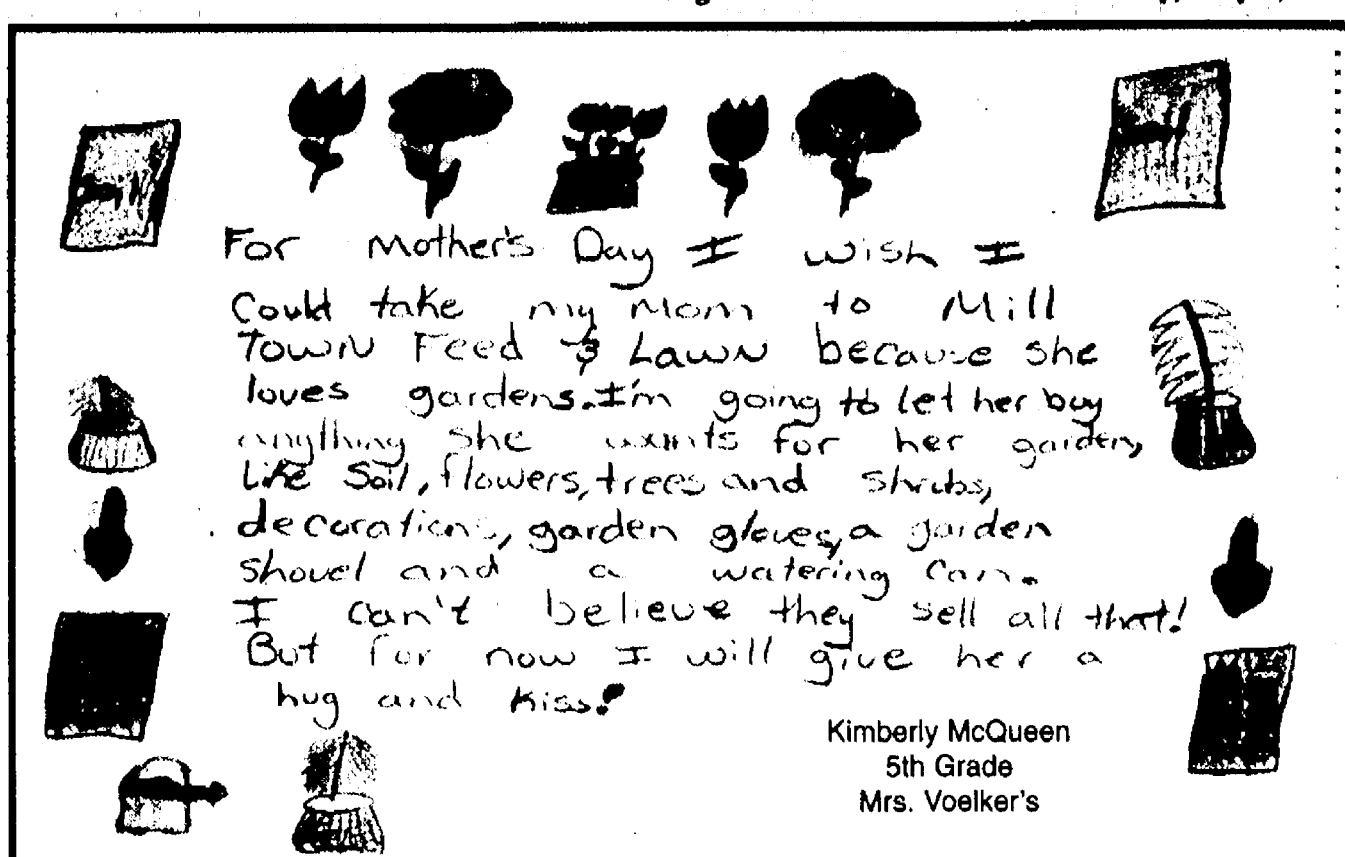 For Mother's Day I wish I
Could take my Mom to Mill
Town Feed & Lawn because she
loves gardens. I'm going to let her buy
anything she wants for her garden,
Like Soil, flowers, trees and shrubs,
decorations, garden gloves, a garden
shovel and a watering can.
I can't believe they sell all that!
But for now I will give her a
hug and kiss!
Kimberly McQueen
5th Grade
Mrs. Voelker's